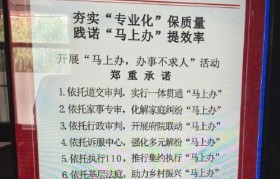 夯实“专业化”保质量
践诺“马上办”提效率
开展“马上办，办事不求人”活动
郑重承诺
1.依托道交审判，实行一体贯交“马上办”
2.依托家事专审，化解家庭纠纷“马上办”
3.依托行政审判，开展府院联动“马上办”
4.依托诉服中心，强化多元解纷“马上办”
5.依托执行110，推行集约执行“马上办”
6.依托基层法庭，助力乡村振兴“马上办”